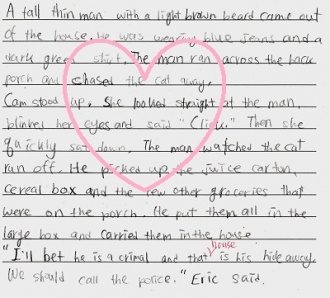 A tall thin man with a light brown beard came out
of the house. He was wearing blue jeans and a
dark green shirt. The man ran across the back
porch and chased the cat away.
Cam stood up. She looked straight at the man,
blinked her eyes and said "Click." Then she
quickly sat down. The man watched the cat
run off. He picked up the juice carton,
cereal box and the few other groceries that
were on the porch. He put them all in the
large box and carried them in the house.
"I'll bet he is a crimal and that house is his hide away.
We should call the police." Eric said.